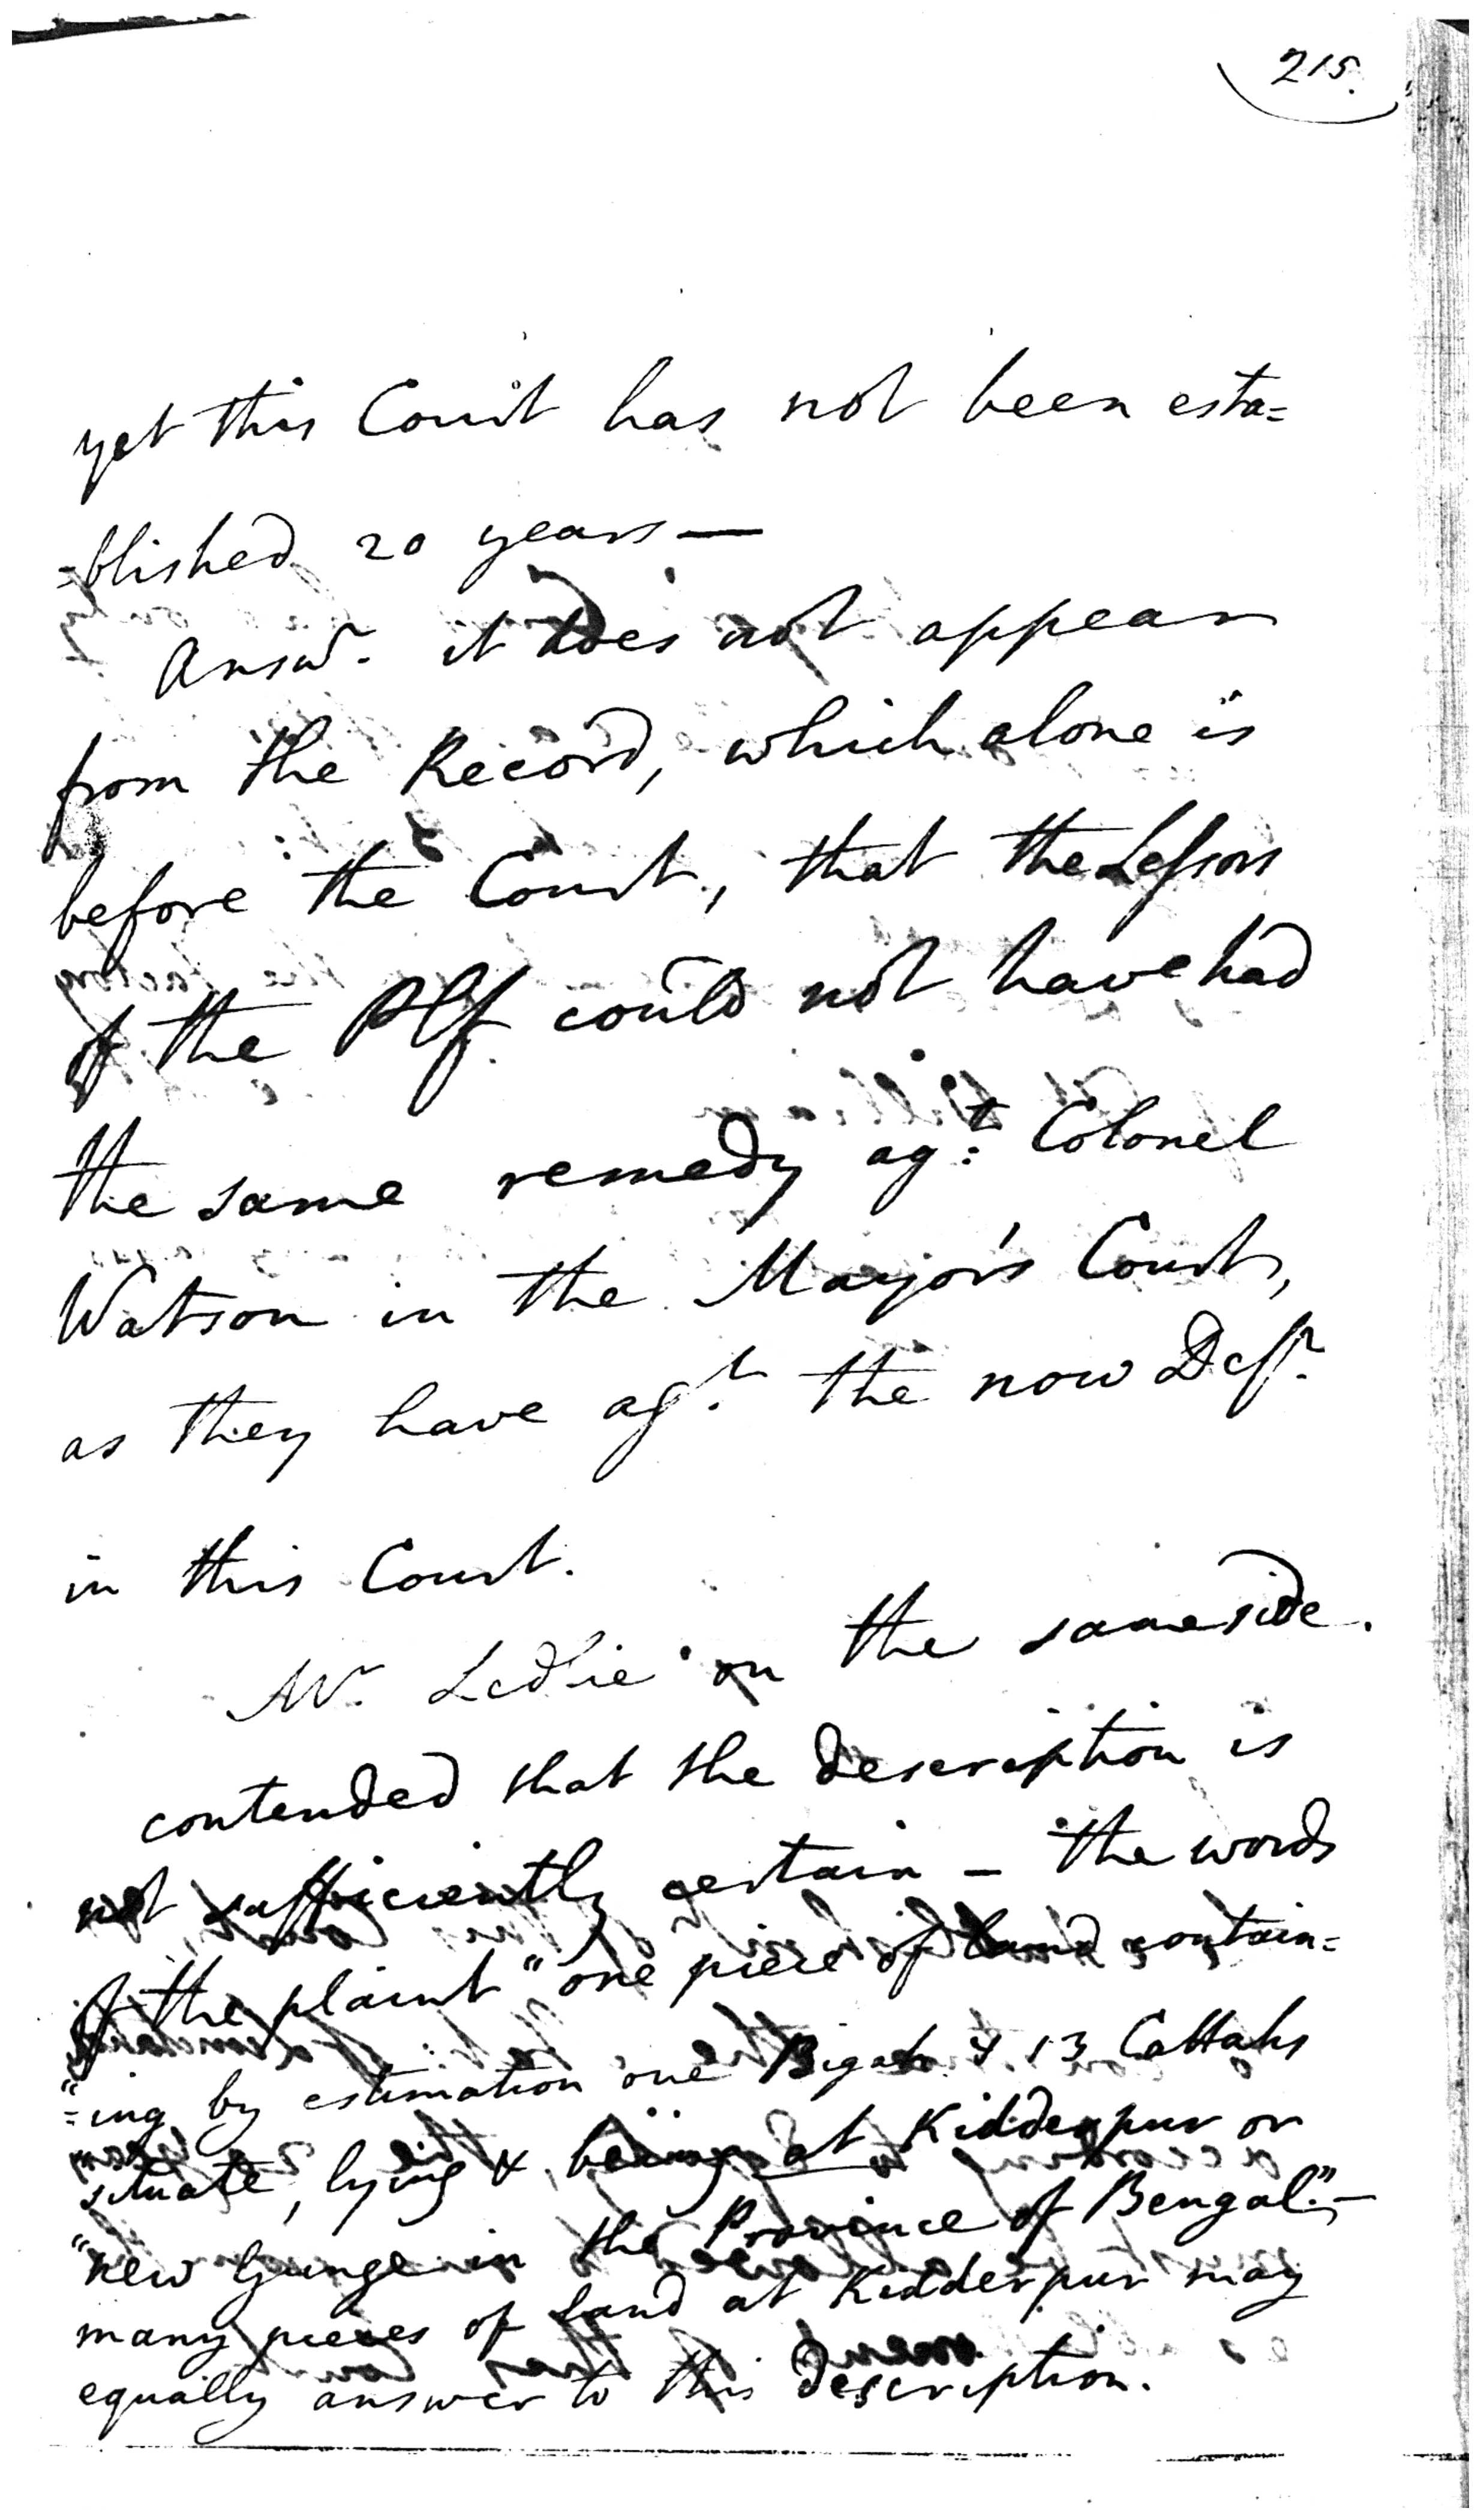 215.
yet this Court has not been esta=
=blished 20 years —
Answr. it does not appear
from the Record, which alone is
before the Court, that the Lessors
of the Plf. could not have had
the same remedy agt. Colonel
Watson in the Mayor's Court,
as they have agt. the now Deft.
in this Court.
Mr. Ledlie on the same side.
contended that the description is
not sufficiently certain — the words
of the plaint "one piece of land contain=
"=ing by estimation one Bigah & 13 Cottahs
"situate, lying & being at Kidderpur or
"new Gunge in the Province of Bengal." —
many pieces of land at Kidderpur may
equally answer to this description.